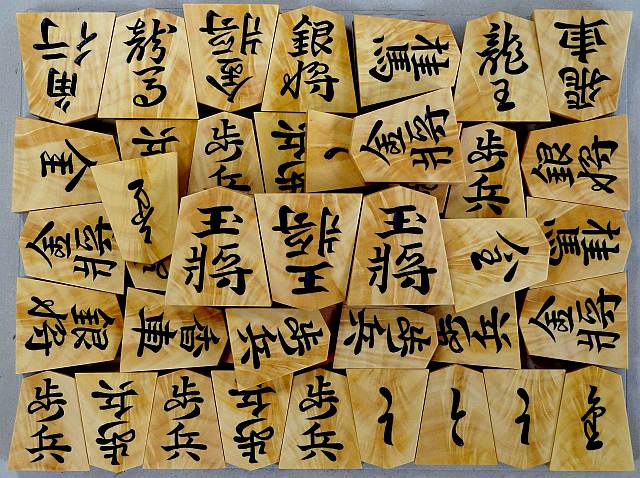 角行
龍馬
金将
銀将
桂馬
龍王
飛車
歩兵
歩兵
歩兵
金将
歩兵
銀将
金将
王將
王将
王將
桂馬
銀将
香車
歩兵
歩兵
歩兵
金将
歩兵
歩兵
歩兵
歩兵
歩兵
と
と
と